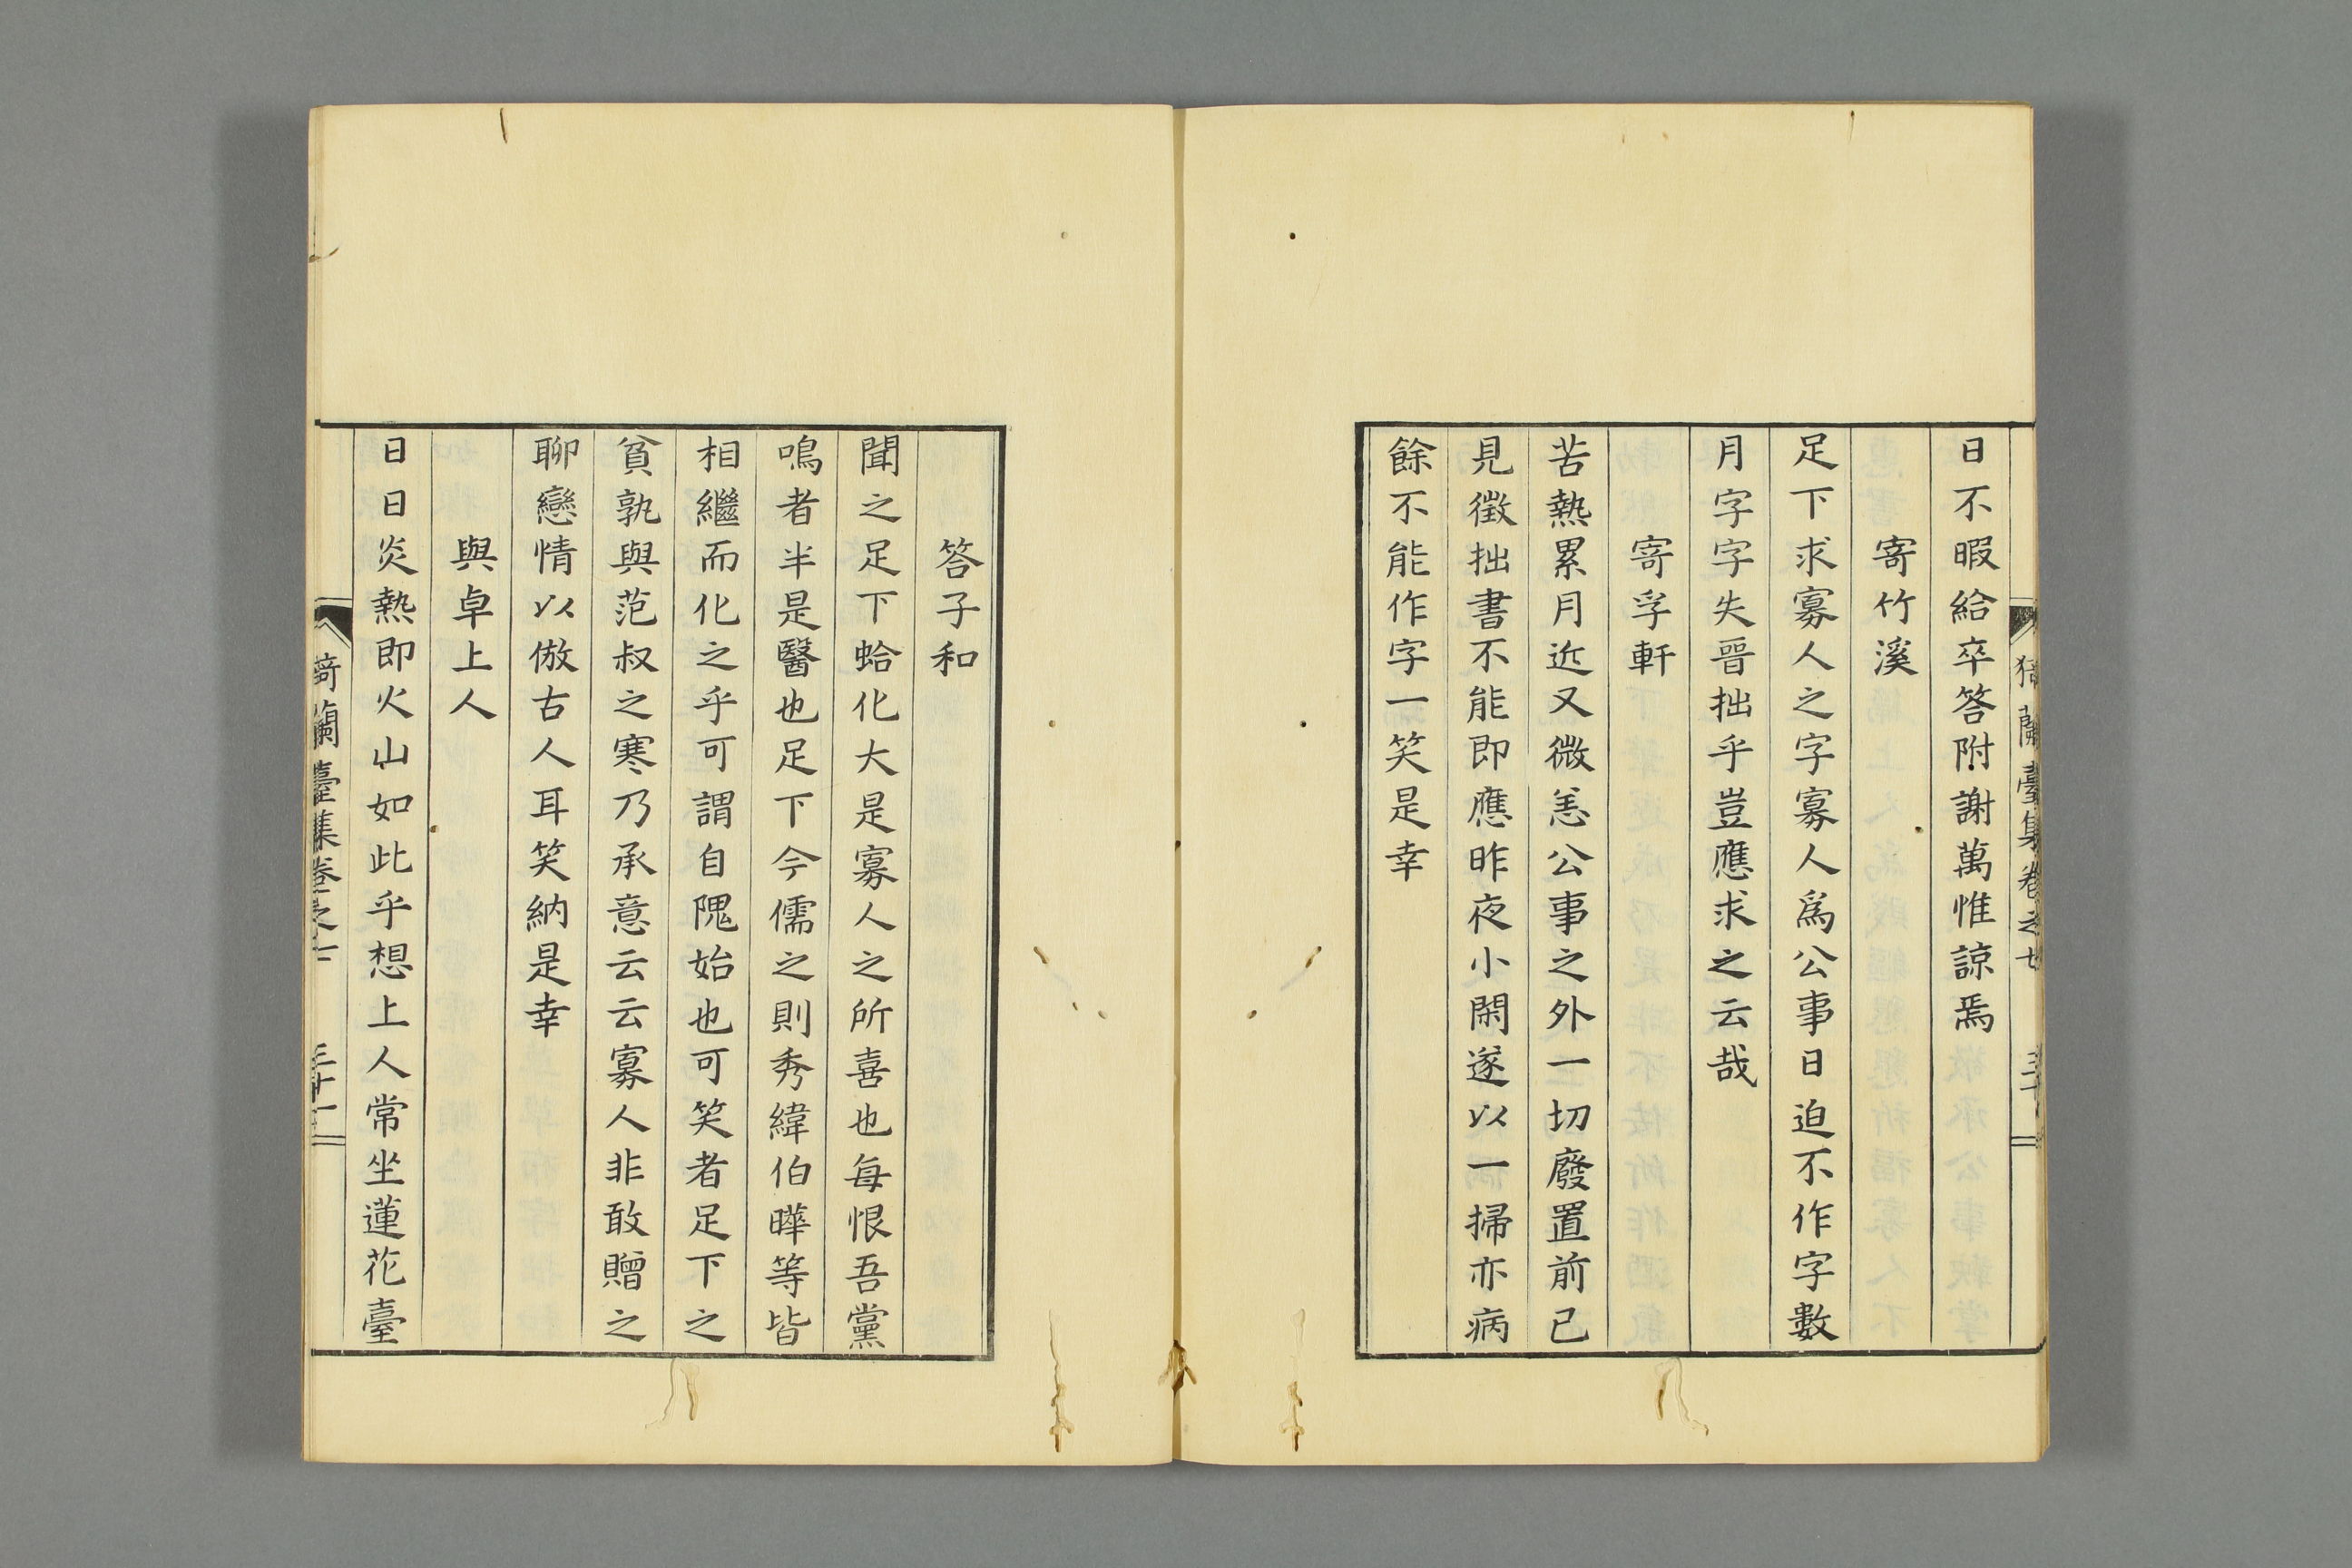 日不暇給卒答附謝萬惟諒焉
寄竹溪
足下求寡人之字寡人爲公事日迫不作字數
月字字失晉拙乎豈應求之云哉
寄孚軒
苦熱累月近又微恙公事之外一切廢置前已
見徵拙書不能即應昨夜小閑遂以一掃亦病
餘不能作字一笑是幸
答子和
聞之足下蛤化大是寡人之所喜也每恨吾黨
鳴者半是醫也足下今儒之則秀緯伯曄等皆
相繼而化之乎可謂自隗始也可笑者足下之
貧孰與范叔之寒乃承意云云寡人非敢贈之
聊戀情以倣古人耳笑納是幸
與卓上人
日日炎熱即火山如此乎想上人常坐蓮花臺
蘭臺集卷之七
三十一